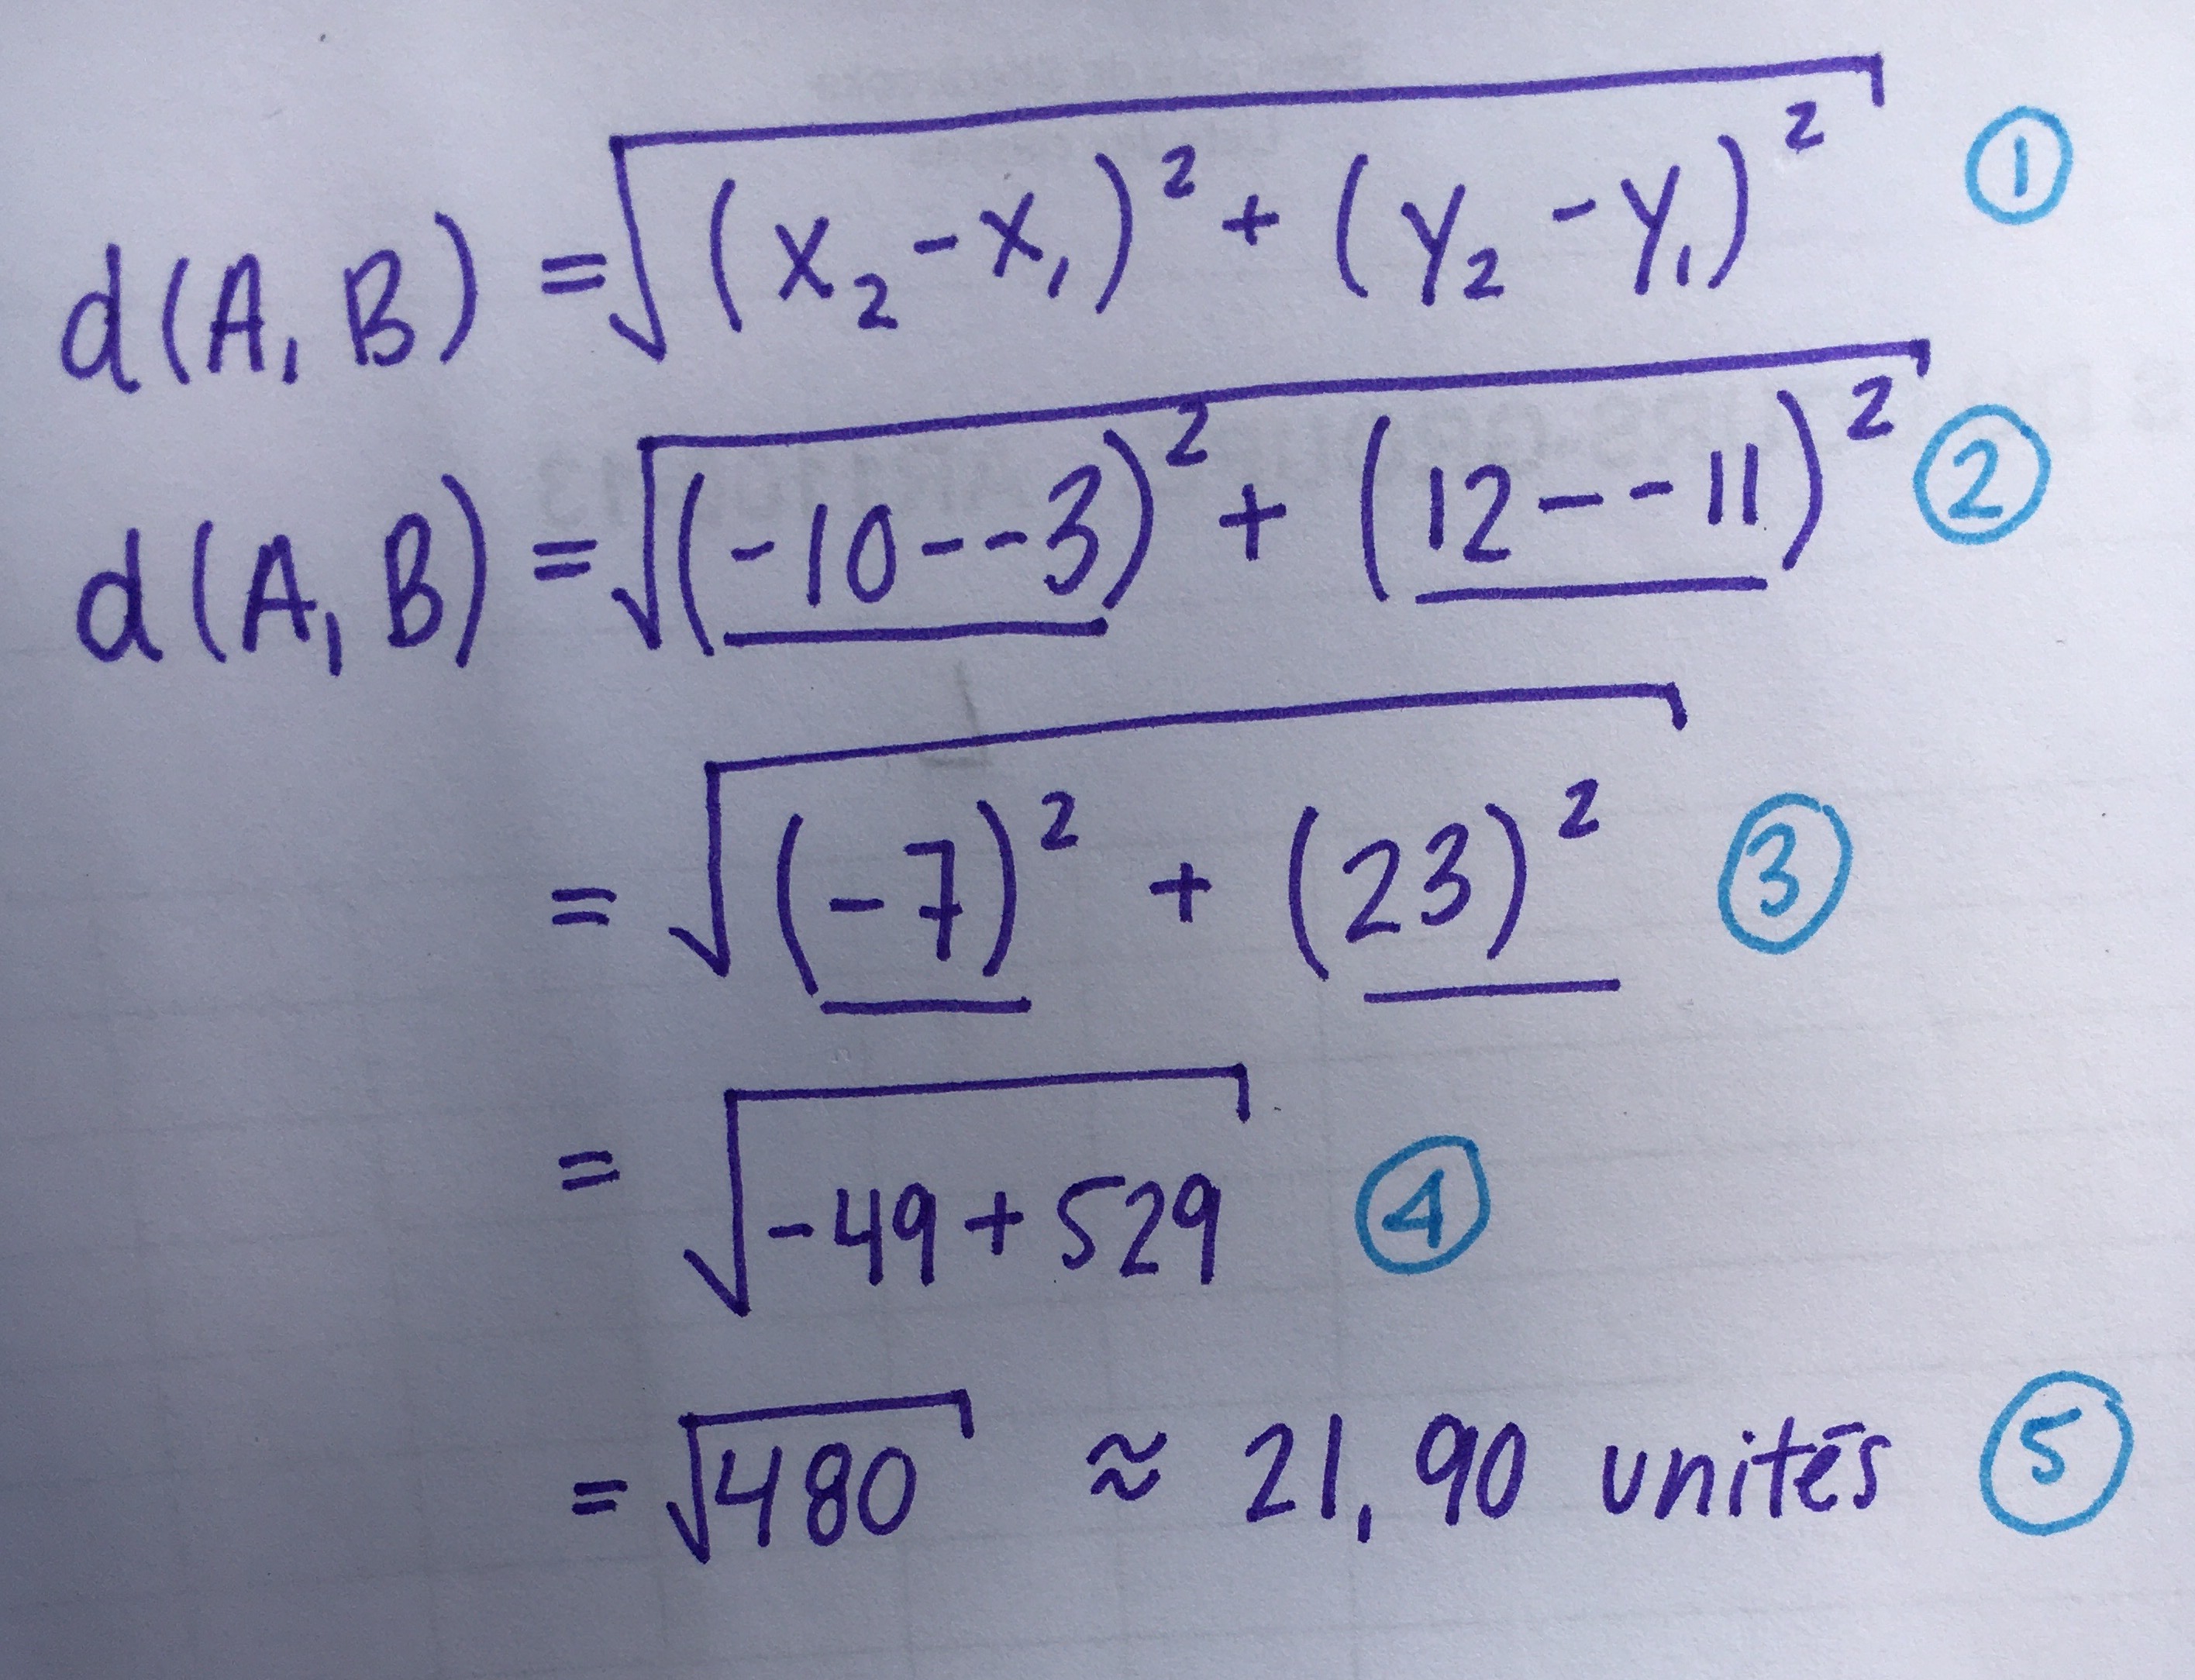 d(A, B) = √((x₂ - x₁)² + (y₂ - y₁)²) ①
d(A, B) = √((-10 - -3)² + (12 - -11)²) ②
= √((-7)² + (23)²) ③
= √(-49 + 529) ④
= √480 ≈ 21,90 unités ⑤